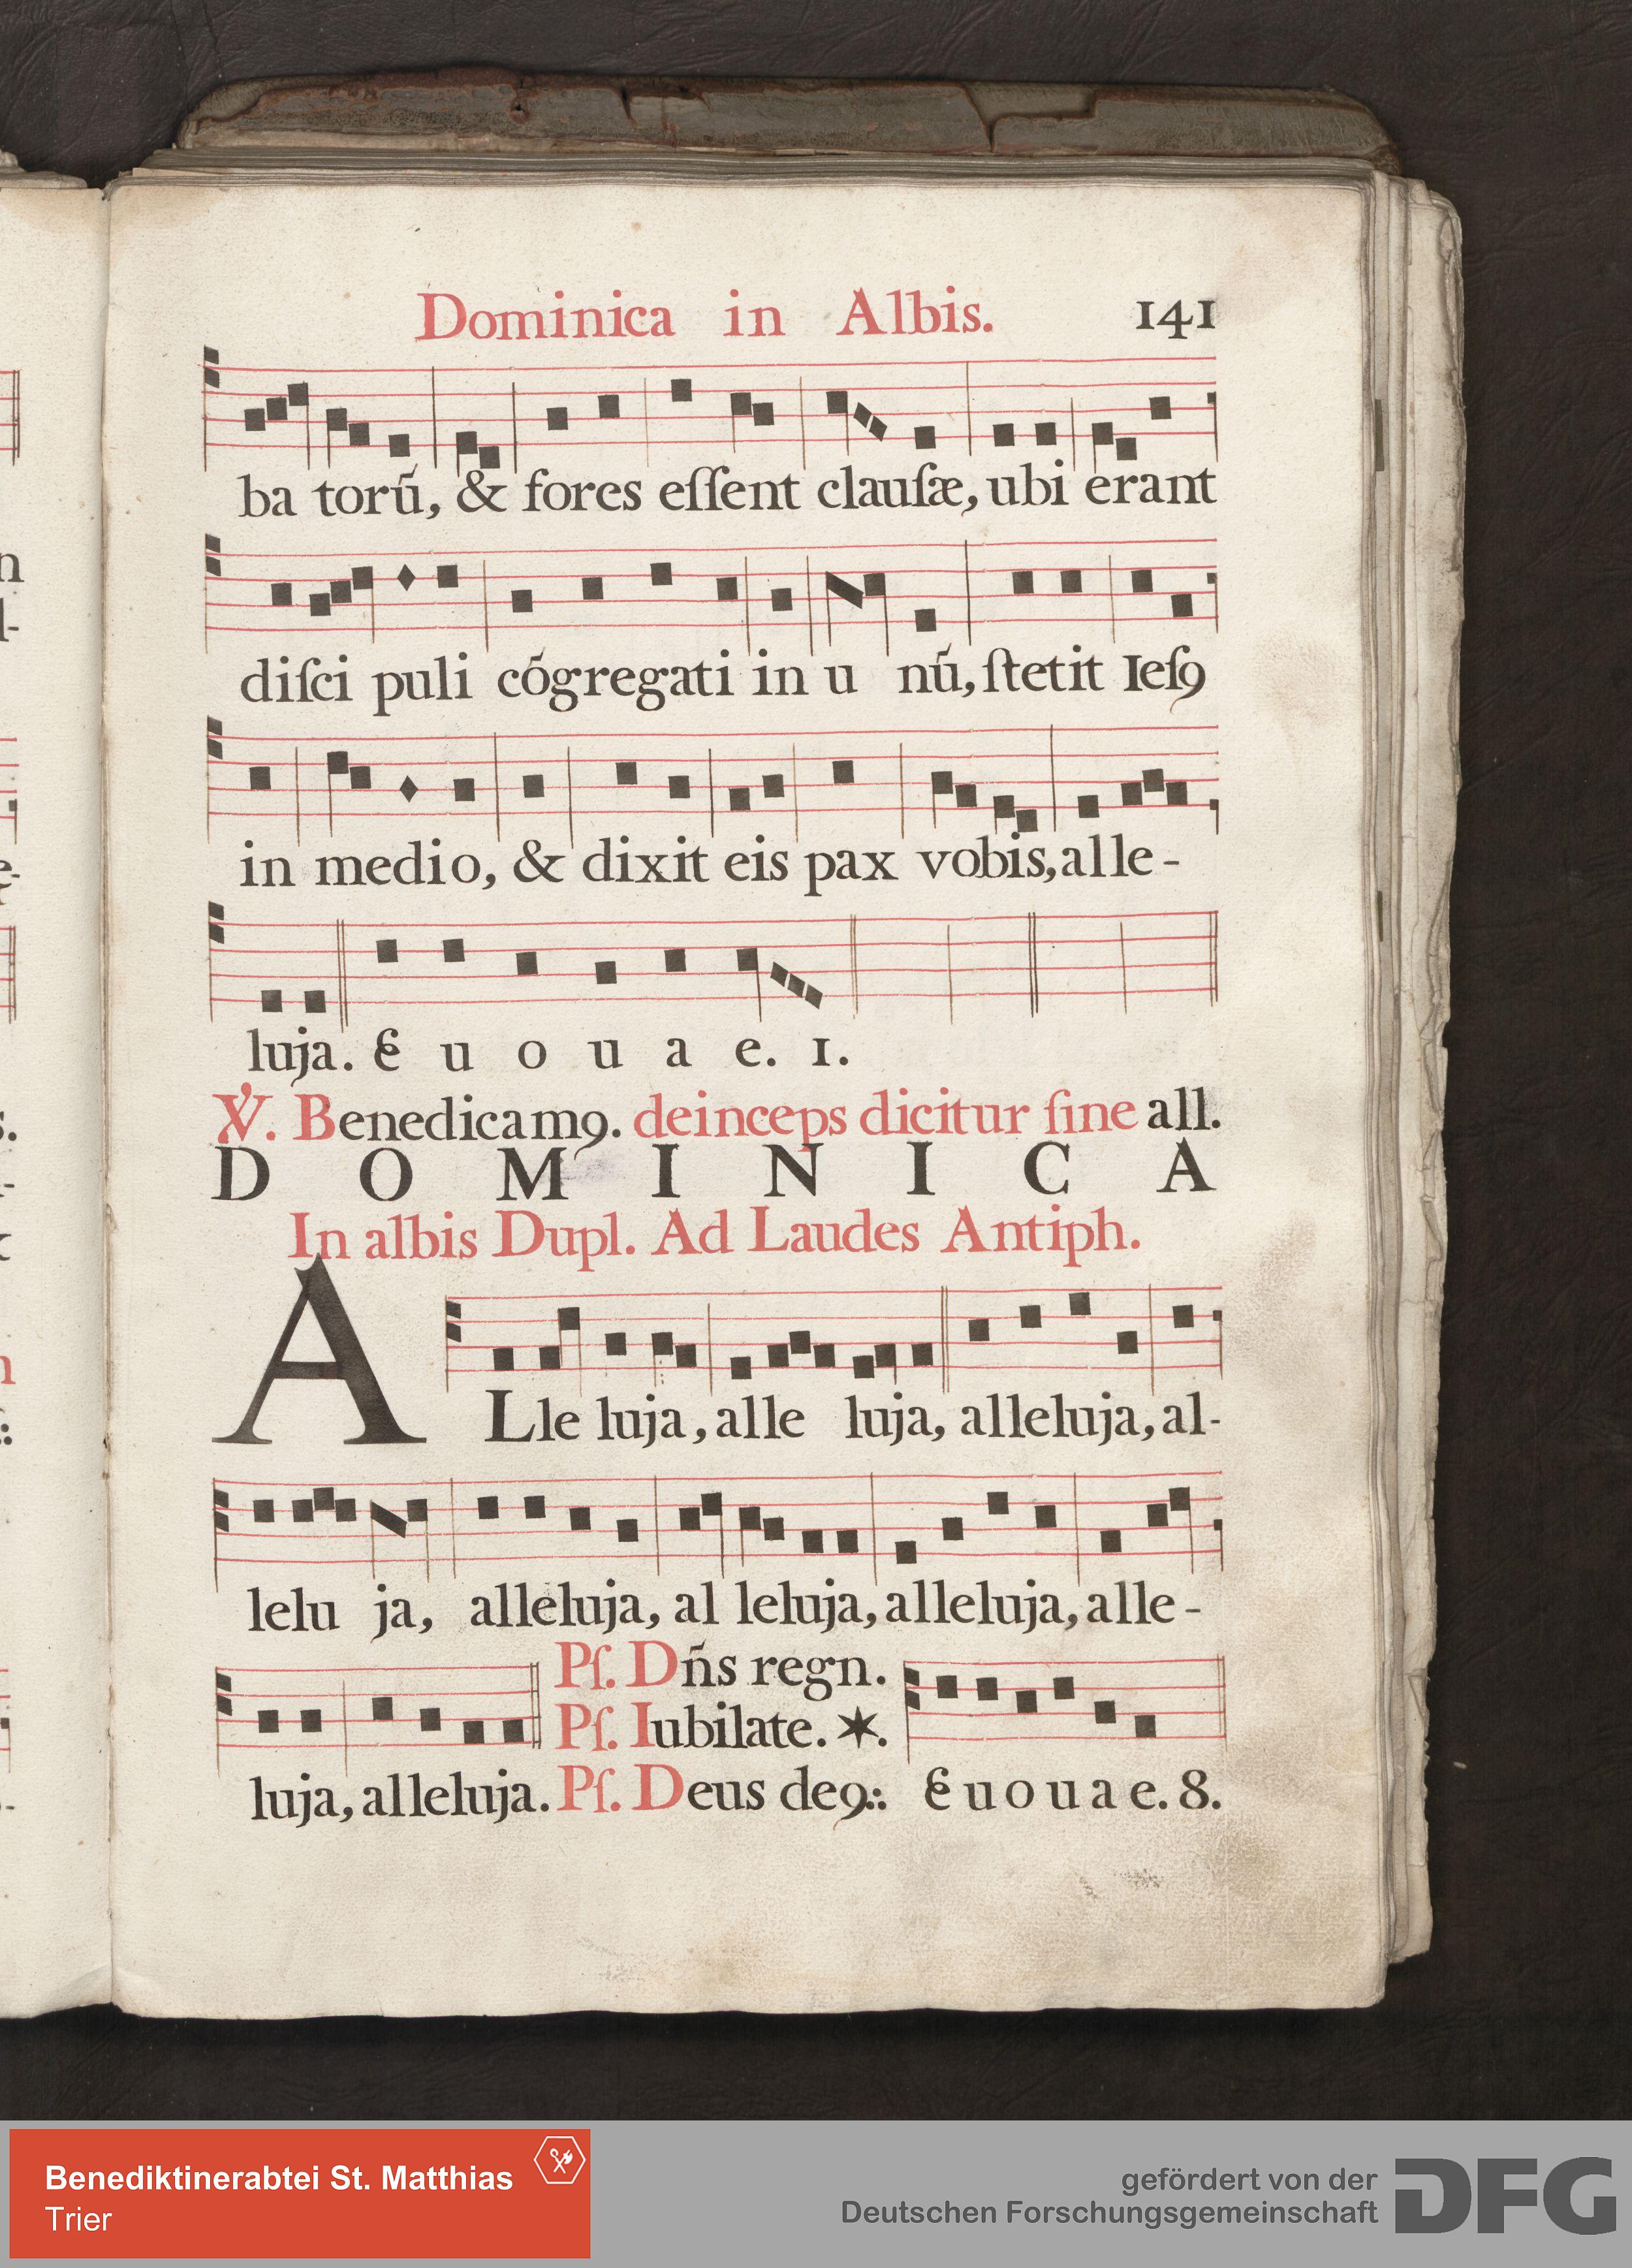 Dominica in Albis. 141
ba torũ, & fores eſſent clauſæ, ubi erant
diſci puli cõgregati in u nũ, ſtetit Ieſꝯ
in medio, & dixit eis pax vobis, alle-
luja. E u o u a e. 1.
℣. Benedicamꝯ. deinceps dicitur ſine all.
D O M I N I C A
In albis Dupl. Ad Laudes Antiph.
ALle luja, alle luja, alleluja, al-
lelu ja, alleluja, al leluja, alleluja, alle-
Pſ. Dñs regn.
Pſ. Iubilate. ✶.
luja, alleluja. Pſ. Deus deꝯ:. E u o u a e. 8.
Benediktinerabtei St. Matthias
Trier
gefördert von der
Deutschen Forschungsgemeinschaft
DFG